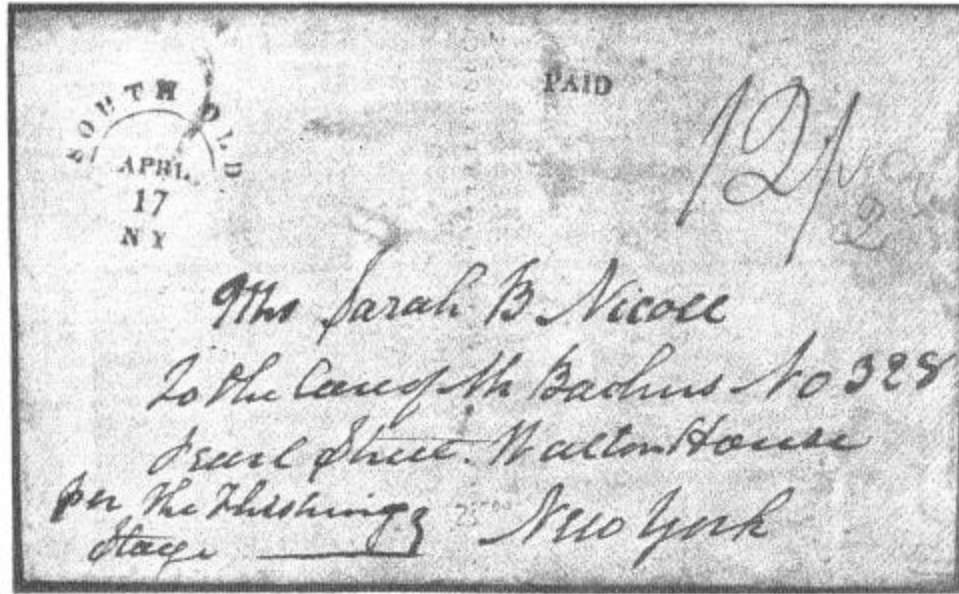 SOUTHOLD
APRIL
17
N Y
PAID
12½
Mrs Sarah B Nicoll
To the Care of Mr Bachus No 328
Pearl Street. Walton House
per the Flushing
Stage
New York